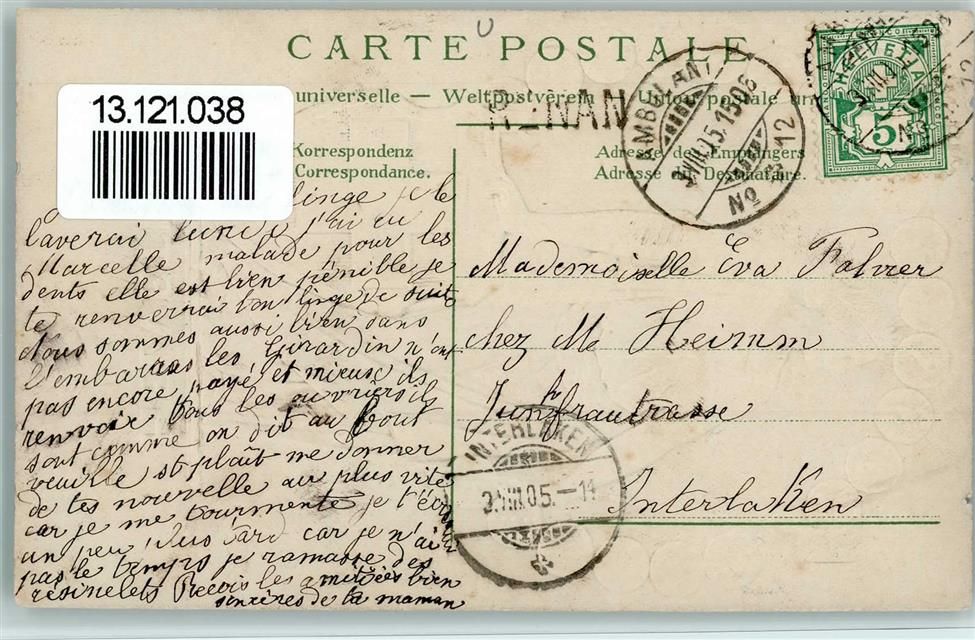 CARTE POSTALE
universelle — Weltpostverein — Union postale un
RENAN
13.121.038
Korrespondenz
Correspondance.
Adresse des Empfängers
Adresse du Destinataire.
HELVETIA
5
AMBULANT
3.VIII.05.1508
No 12
linge je le
laverai lundi j'ai eu
Marcelle malade pour les
dents elle est bien pénible je
te renverrai ton linge de suite
Nous sommes aussi bien dans
l'embarras les Girardin n'ont
pas encore payé et mieux ils
renvoie tous les ouvriers ils
sont comme on dit au bout
veuille st plait me donner
de tes nouvelle au plus vite
car je me tourmente je t'écri
un peu plus tard car je n'ai
pas le temps je ramasse des
résinelets Reçois les amitiées bien
sincères de ta maman
Mademoiselle Eva Fahrer
chez Me Heimm
Jungfrautrasse
Interlaken
INTERLAKEN
3.VIII.05.—11